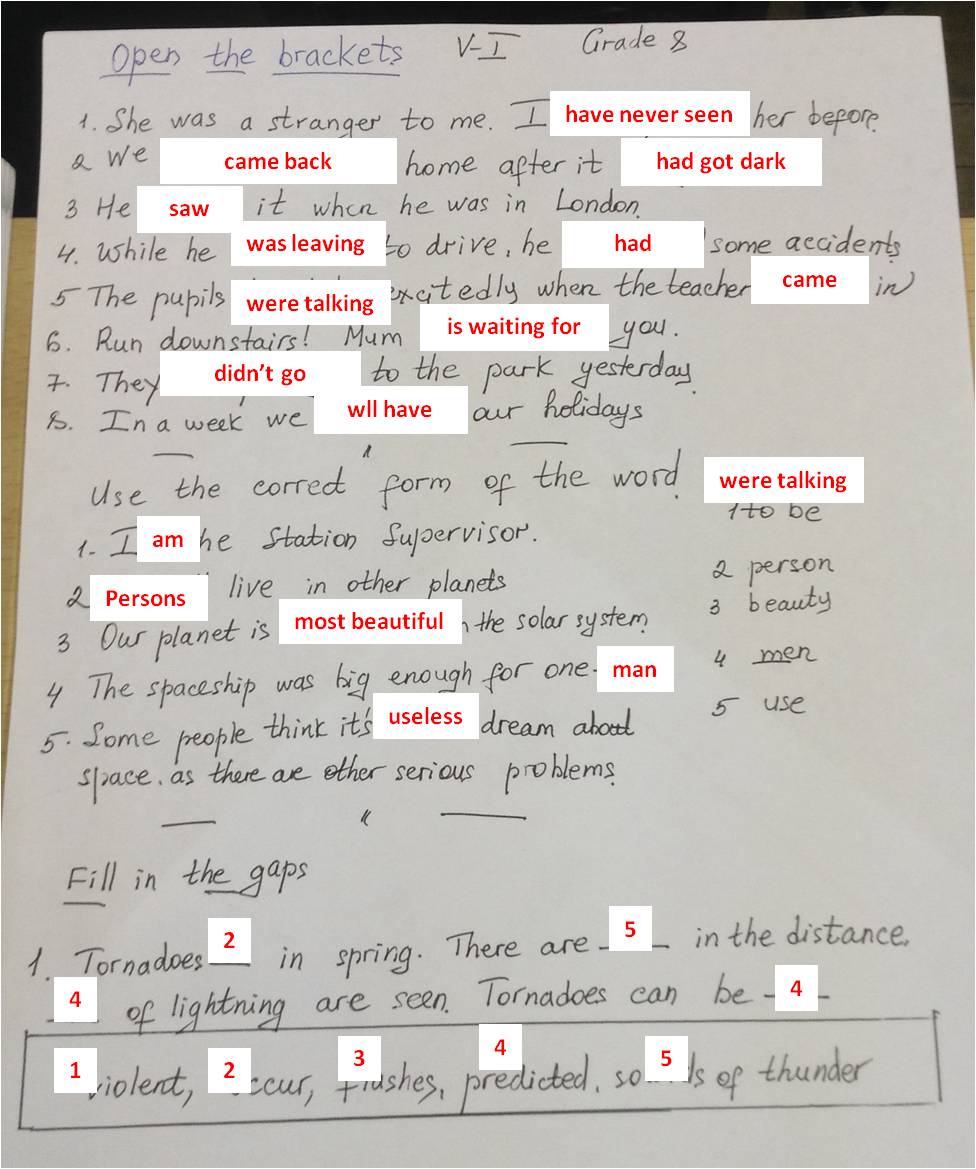 Open the brackets V-I Grade 8
1. She was a stranger to me. I have never seen her before.
2 We came back home after it had got dark
3 He saw it when he was in London.
4. While he was leaving to drive, he had some accidents
5 The pupils were talking excitedly when the teacher came in
6. Run downstairs! Mum is waiting for you.
7. They didn't go to the park yesterday.
8. In a week we wll have our holidays
Use the correct form of the word. were talking
1. I am he Station Supervisor. 1 to be
2 Persons live in other planets 2 person
3 Our planet is most beautiful the solar system. 3 beauty
4 The spaceship was big enough for one- man 4 men
5. Some people think it's useless dream about 5 use
space. as there are other serious problems.
Fill in the gaps
1. Tornadoes 2 in spring. There are 5 in the distance.
4 of lightning are seen. Tornadoes can be 4
1 violent, 2 ccur, 3 flashes, 4 predicted, 5 so ds of thunder